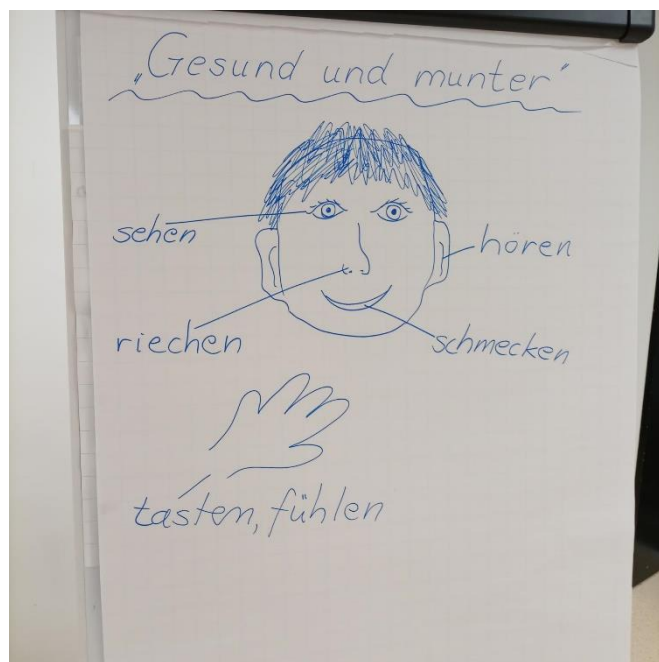 „Gesund und munter"
sehen
hören
riechen
schmecken
tasten, fühlen